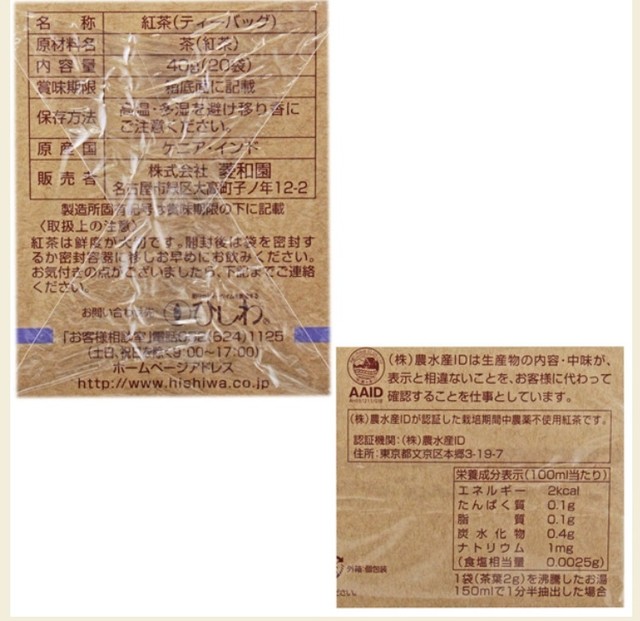 名称 紅茶(ティーバッグ)
原材料名 茶(紅茶)
内容量 40g(20袋)
賞味期限 箱底面に記載
保存方法 高温・多湿を避け移り香に
ご注意ください。
原産国 ケニア・インド
販売者 株式会社 菱和園
名古屋市緑区大高町子ノ年12-2
製造所固有記号は賞味期限の下に記載
〈取扱上の注意〉
紅茶は鮮度が大切です。開封後は袋を密封す
るか密封容器に移しお早めにお飲みください。
お気付きの点がございましたら、下記までご連絡
ください。
お問い合わせ先 ひしわ®
「お客様相談室」電話052(624)1125
(土日、祝日を除く9:00~17:00)
ホームページアドレス
http://www.hishiwa.co.jp
AAID
(株)農水産IDは生産物の内容・中味が、
表示と相違ないことを、お客様に代わって
確認することを仕事としています。
(株)農水産IDが認証した栽培期間中農薬不使用紅茶です。
認証機関:(株)農水産ID
住所:東京都文京区本郷3-19-7
栄養成分表示(100ml当たり)
エネルギー 2kcal
たんぱく質 0.1g
脂質 0.1g
炭水化物 0.4g
ナトリウム 1mg
(食塩相当量 0.0025g)
外箱:個包装
1袋(茶葉2g)を沸騰したお湯
150mlで1分半抽出した場合